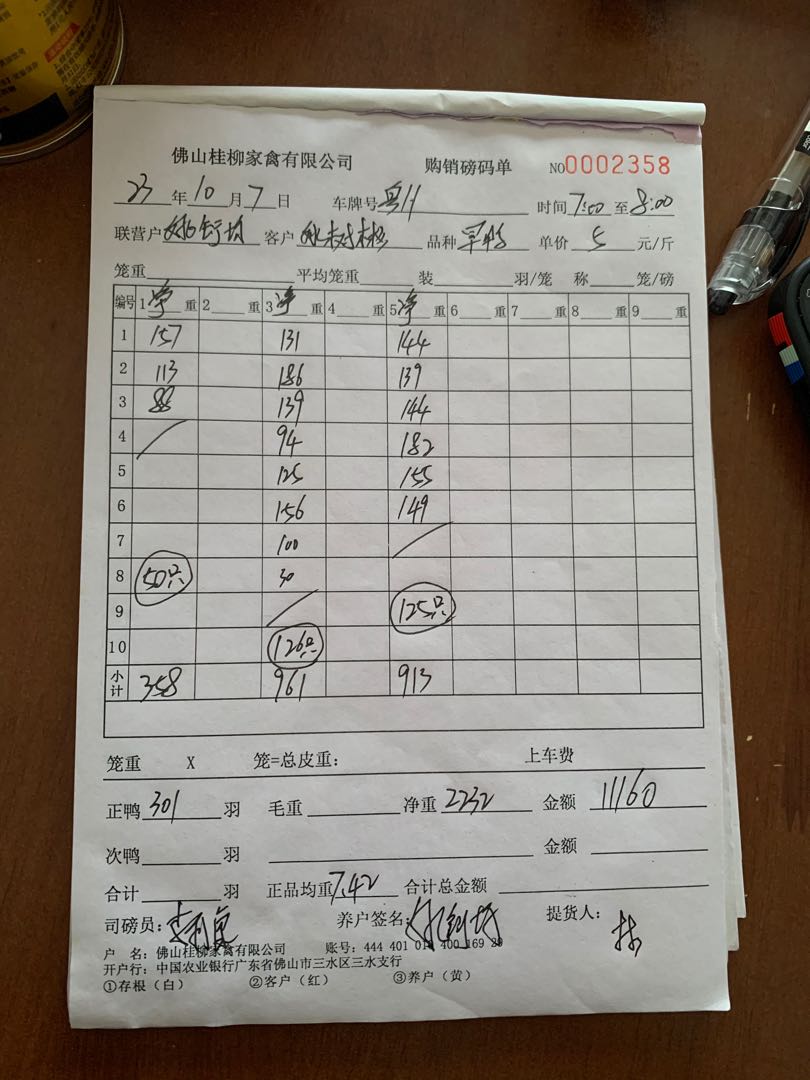 佛山桂柳家禽有限公司 购销磅码单 NO0002358
23年10月7日 车牌号 粤H 时间7:00至8:00
联营户 客户 品种 单价5元/斤
笼重 平均笼重 装 羽/笼 称 笼/磅
编号 1净重 2 重 3净重 4 重 5净重 6 重 7 重 8 重 9 重
1 157 131 144
2 113 186 139
3 88 139 144
4 94 182
5 125 155
6 156 149
7 100
8 50只 30
9 125只
10 126只
小计 358 961 913
笼重 X 笼=总皮重: 上车费
正鸭301羽 毛重 净重2232 金额11160
次鸭 羽 金额
合计 羽 正品均重7.42 合计总金额
司磅员: 养户签名: 提货人:
户 名:佛山桂柳家禽有限公司 账号:444 401 010 400 169 29
开户行:中国农业银行广东省佛山市三水区三水支行
①存根(白) ②客户(红) ③养户(黄)